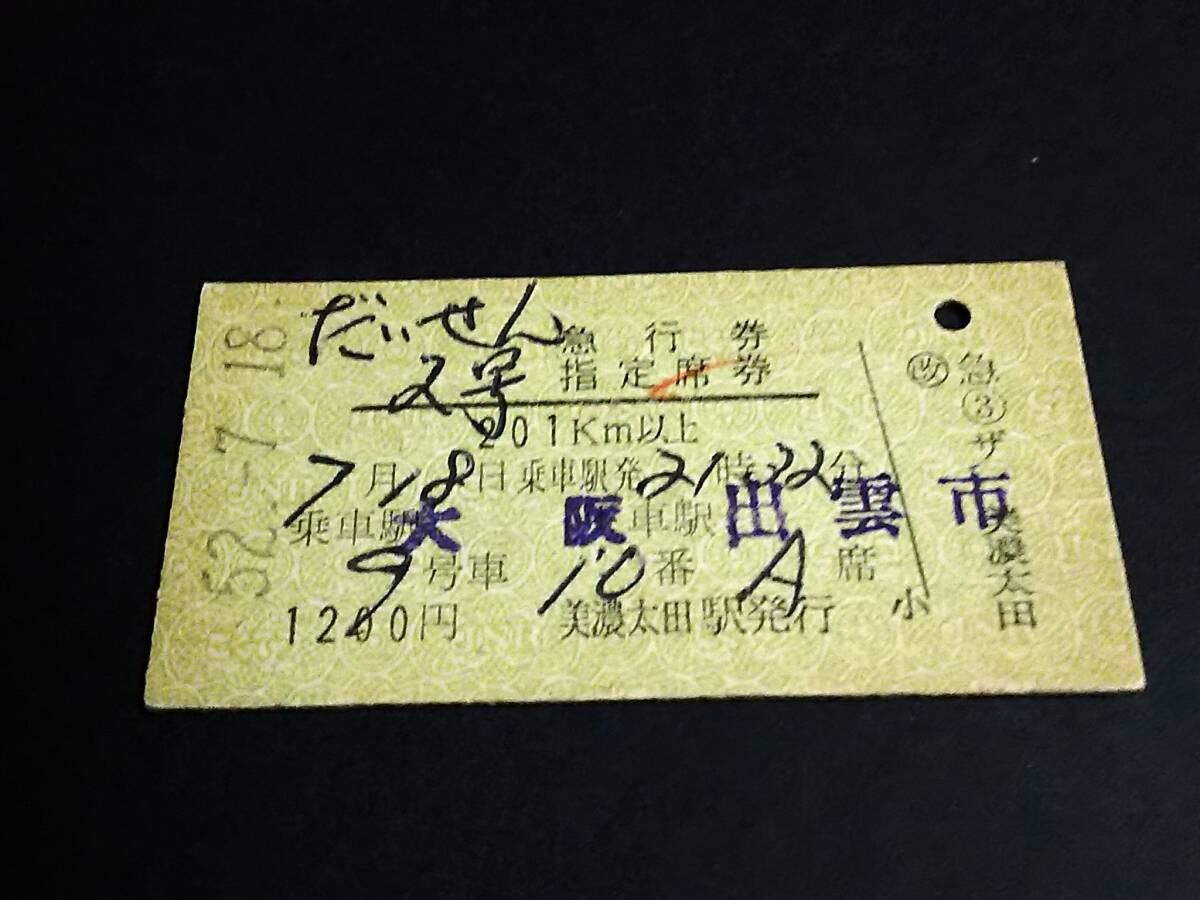 52.-7.18
だいせん 急行券
2号 指定席券
201Km以上
7月18日乗車駅発21時32分
乗車駅 大阪 車駅 出雲市
9号車 10番 A席
1200円 美濃太田駅発行 小
改 急 3 ザ 美濃太田